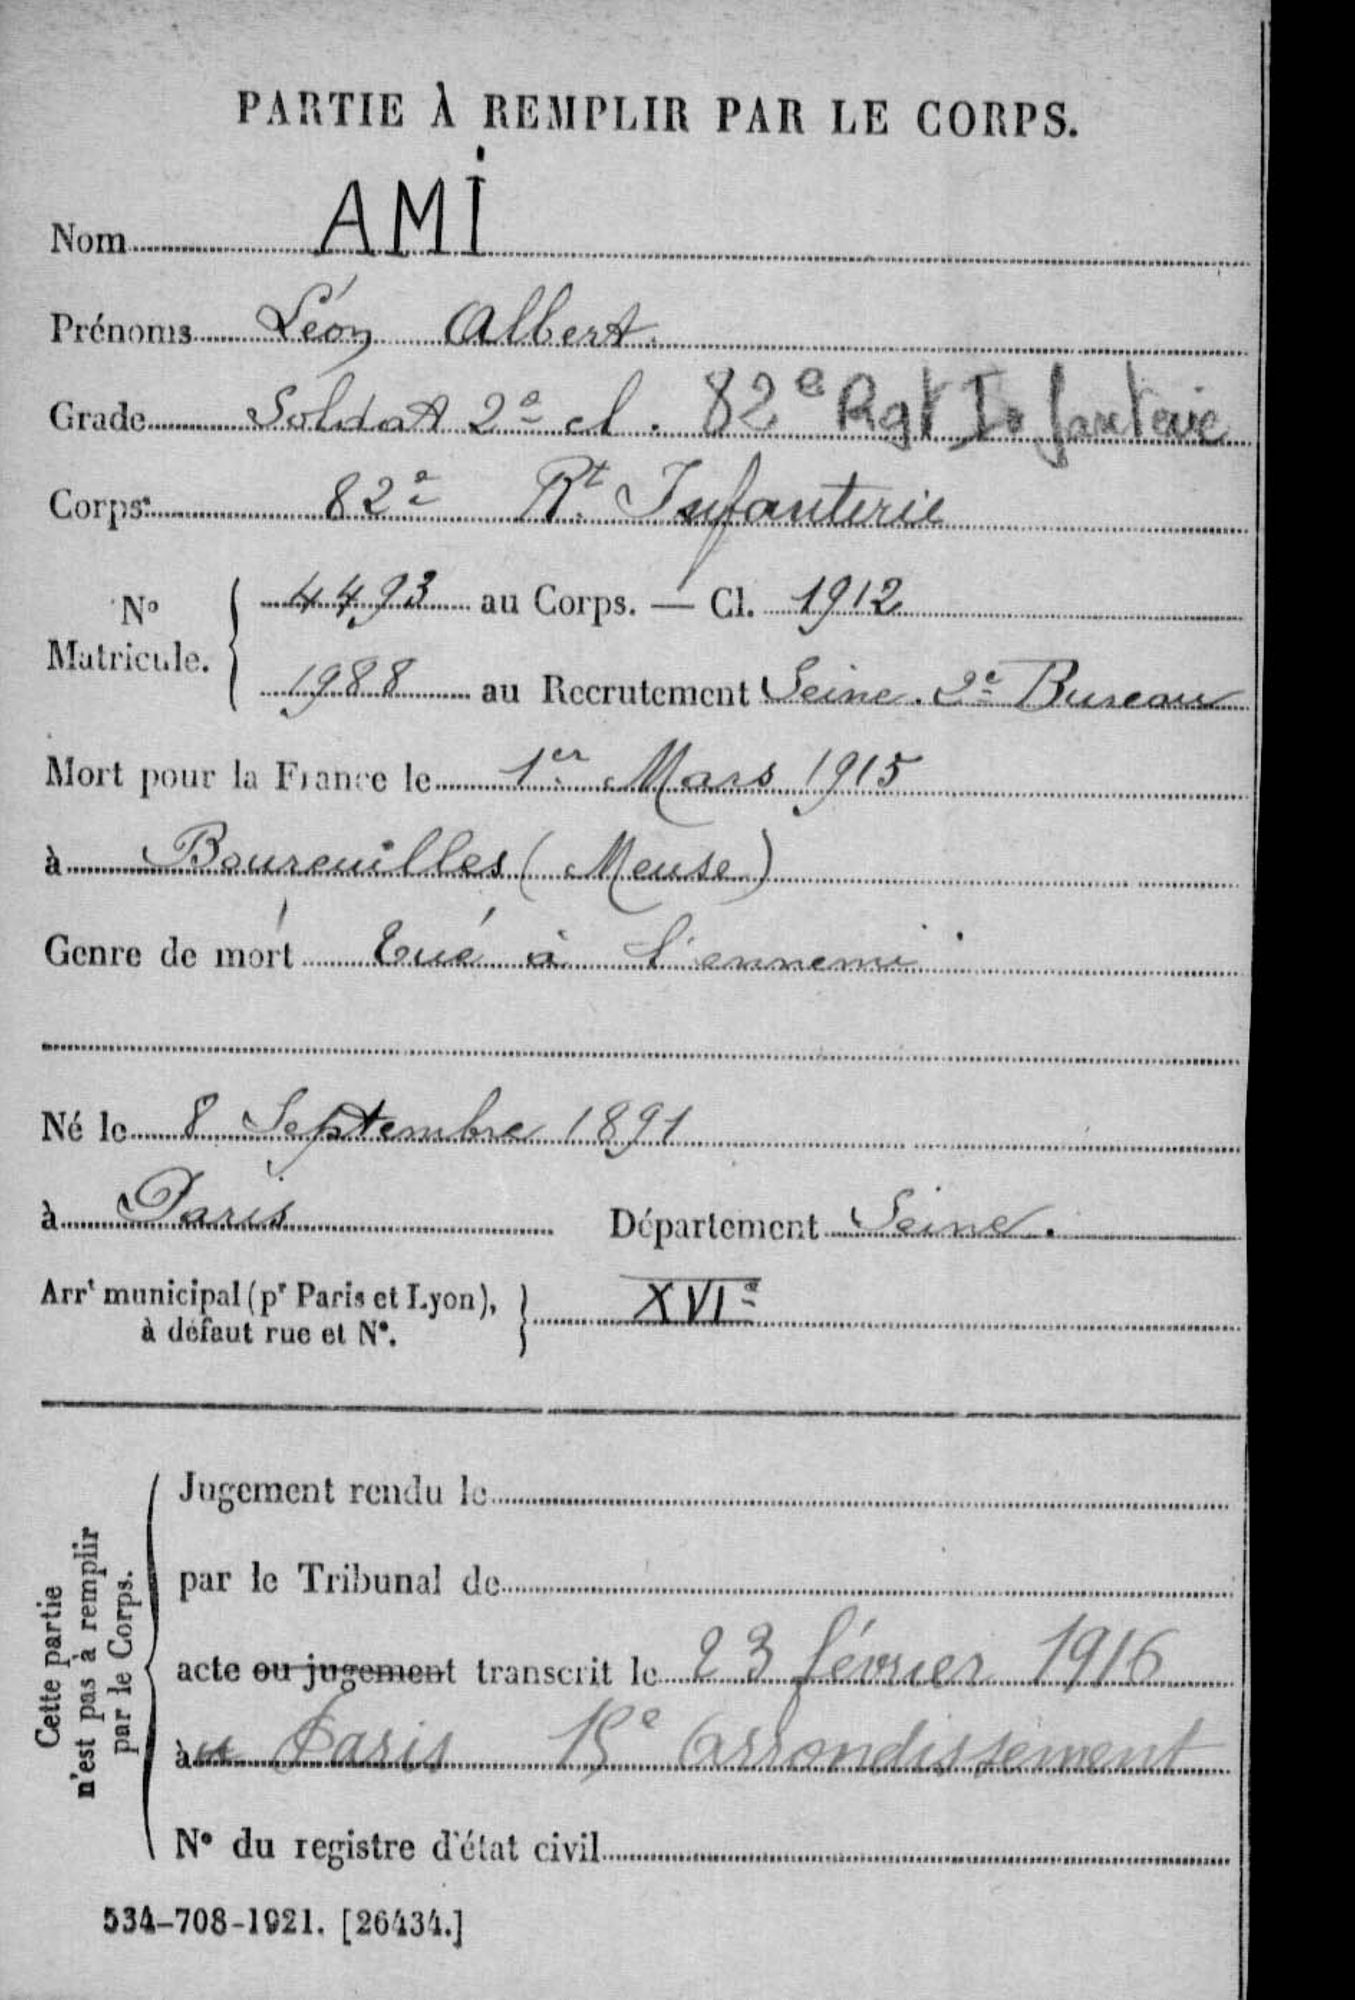 PARTIE À REMPLIR PAR LE CORPS.
Nom AMI
Prénoms Léon Albert.
Grade Soldat 2e cl. 82e Rgt Infanterie
Corps 82e Rt Infanterie
No Matricule. { 4493 au Corps. — Cl. 1912
1988 au Recrutement Seine. 2e Bureau
Mort pour la France le 1er Mars 1915
à Boureuilles (Meuse)
Genre de mort tué à l'ennemi
Né le 8 Septembre 1891
à Paris Département Seine.
Arrt municipal (pr Paris et Lyon), } XVIe
à défaut rue et No.
Cette partie
n'est pas à remplir
par le Corps.
Jugement rendu le
par le Tribunal de
acte ou jugement transcrit le 23 février 1916
à Paris 15e Arrondissement
No du registre d'état civil
534-708-1921. [26434.]